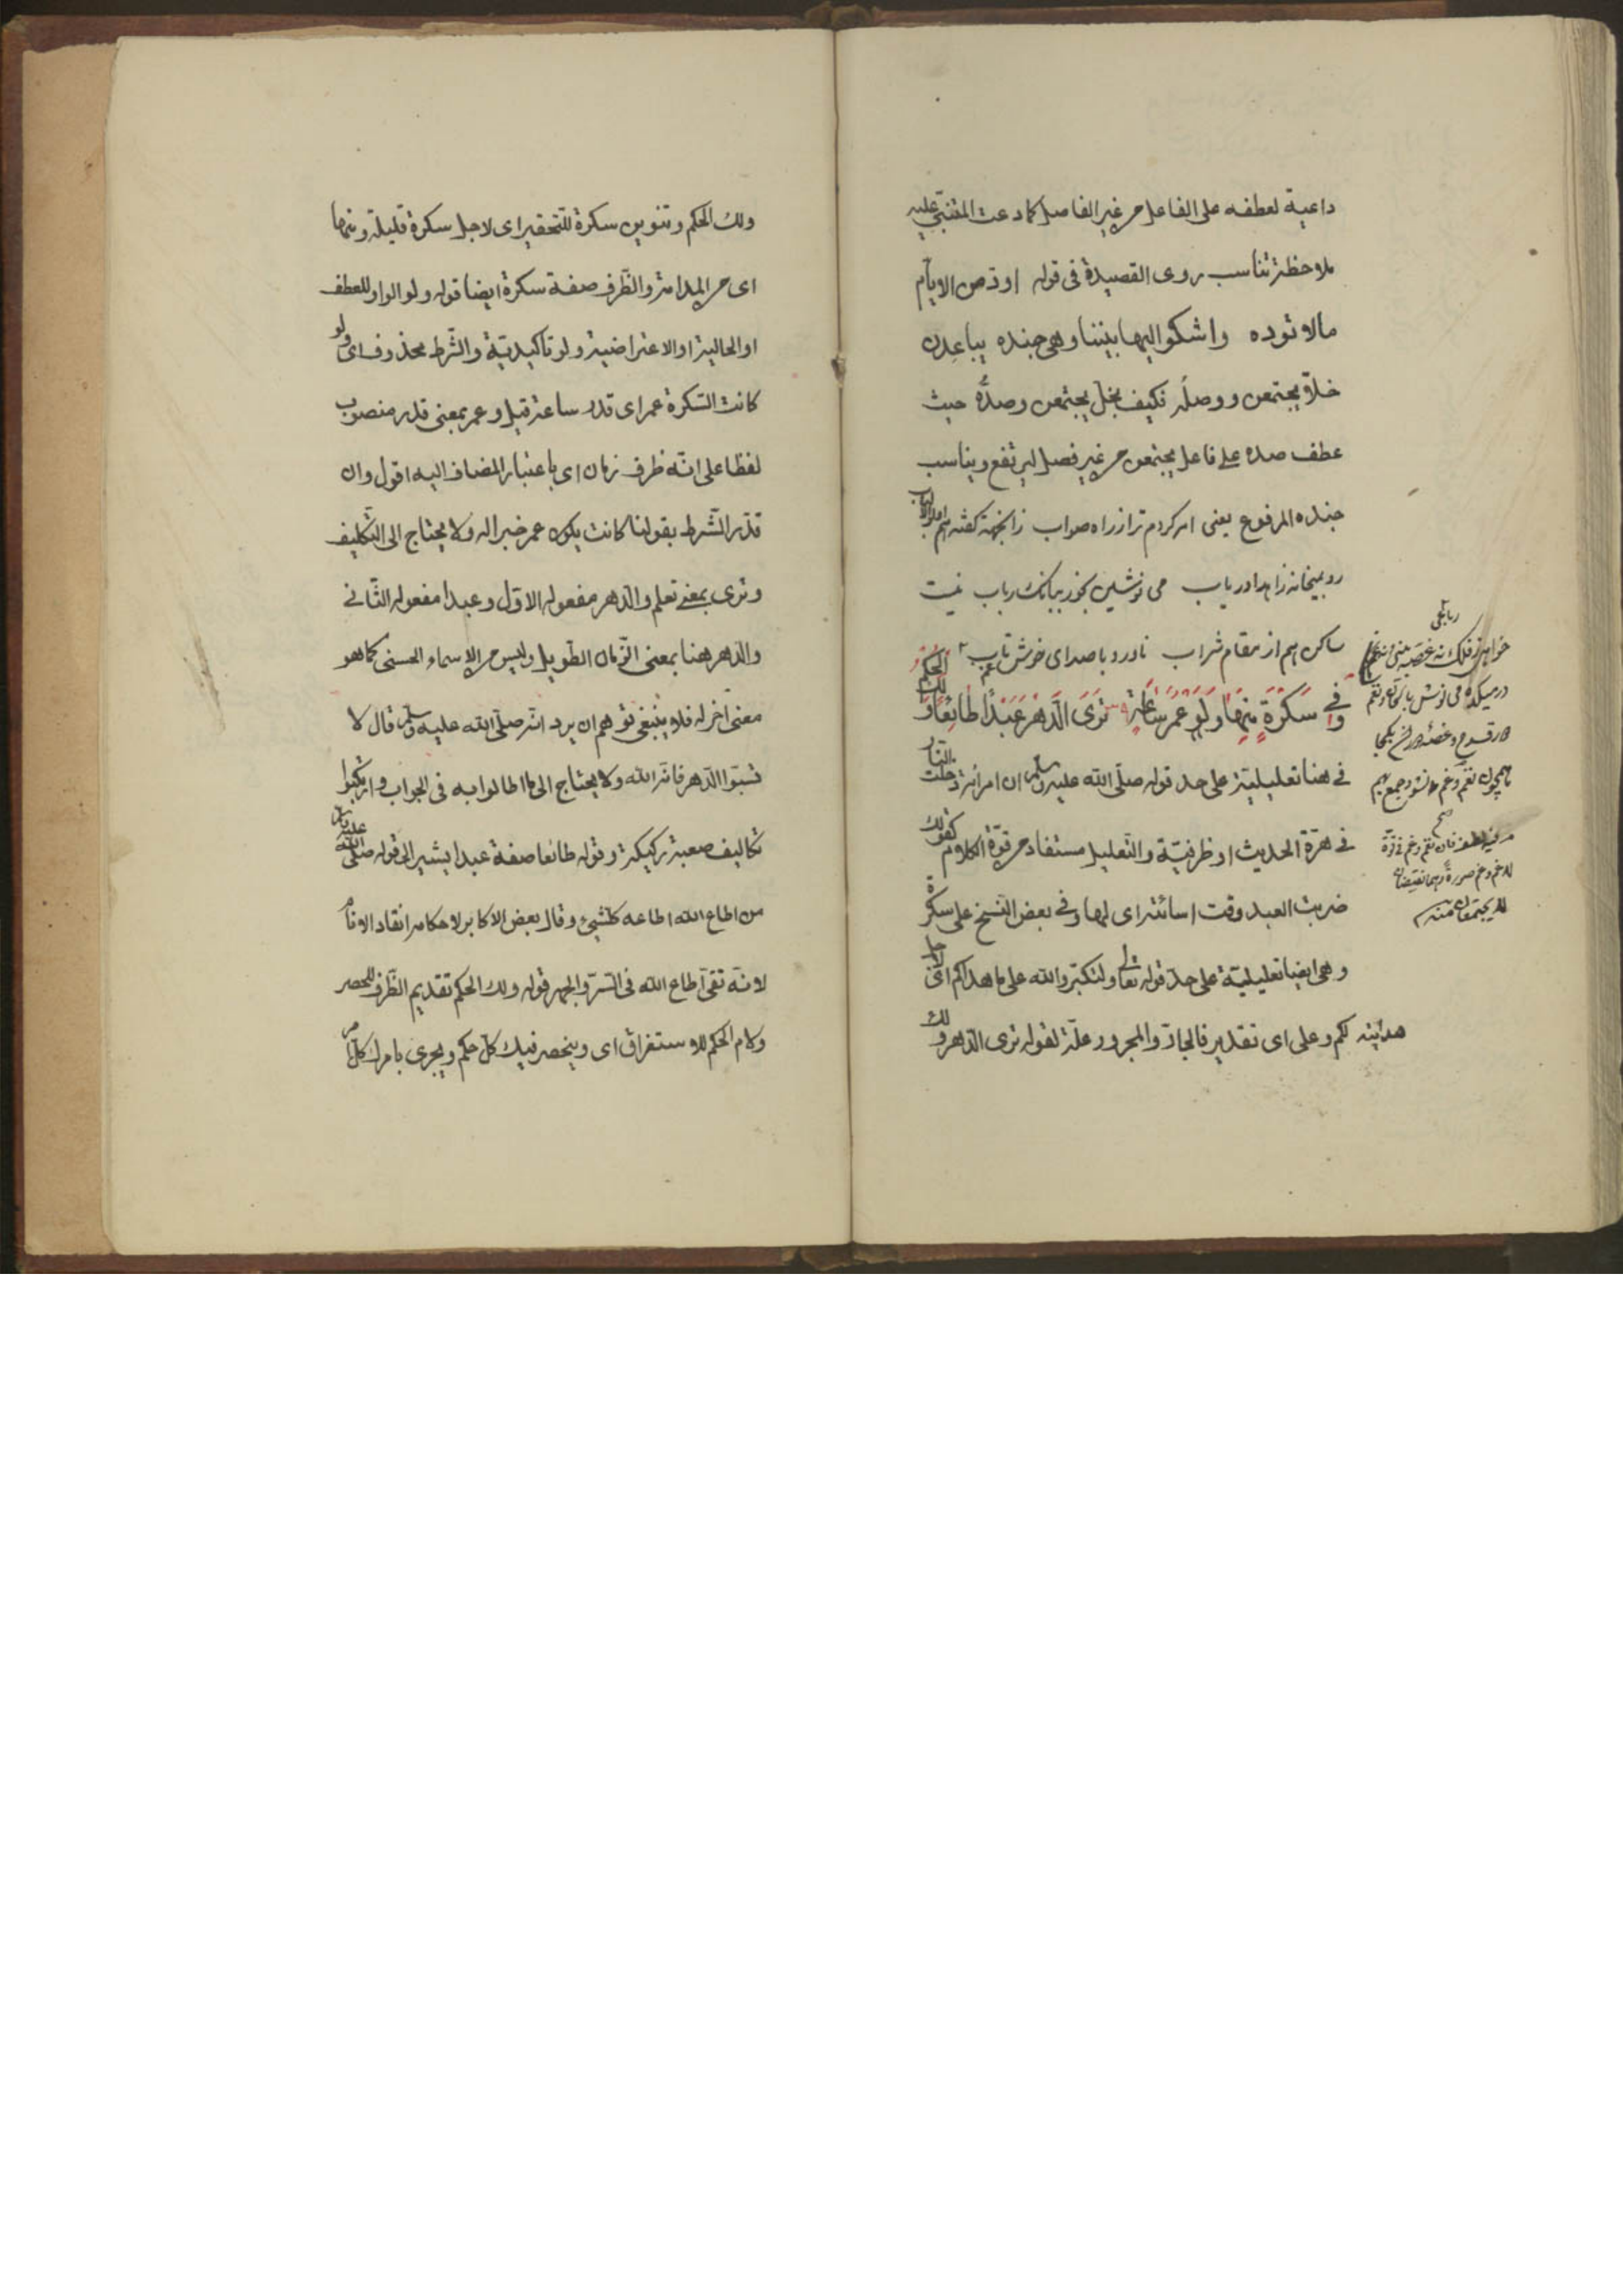 داعية لعطفه على الفاعل من غير الفاصل كما دعت المتنبّي عليه
ملاحظة تناسب روى القصيدة فى قوله اودّ من الايّام
مالا تودّه واشكو اليها بيننا وهى جنده يباعدن
خلاّ يجتمعن ووصلُه فكيف بخلّ يجتمعن وصدُّه حيث
عطف صده على فاعل يجتمعن من غير فصل ليرتفع ويناسب
جنده المرفوع يعنى امر كردم ترا ز راه صواب زانجهة كفته
رو بميخانه زاهدا درياب مى نوشين بخور ببانك رباب نيست
ساكن هم از مقام شراب ناورد با صداى خوش تاب غم
وَفِي سَكْرَةٍ مِنْهَا وَلَوْ عُمْرَ سَاعَةٍ تَرَى الدَّهْرَ عَبْدًا طَائِعًا وَلَكَ الْحُكْمُ
فى هنا تعليلية على حد قوله صلّى الله عليه وسلم ان امرأة دخلت النار
فى هرّة الحديث او ظرفيّة والتعليل مستفاد من قوّة الكلام كقولك
ضربت العبد وقت اسائته اى لها وفى بعض النسخ على سكرة
وهى ايضا تعليليّة على حدّ قوله تعالى ولتكبّروا الله على ما هداكم اى لاجل
هدايته لكم وعلى اى تقدير فالجارّ والمجرور علّة لقوله ترى الدّهر ولك
رباعى
خواهى ز فلك نه غصه بينى نه غم
در ميكده مى نوش
همچون نغم وغم نشود جمع بهم
فان نغم وغم
وغم صورة وهما نقيضان
لا يجتمعان منه
ولك الحكم وتنوين سكرة للتحقير اى لاجل سكرة قليلة ومنها
اى من المدامة والظّرف صفة سكرة ايضا قوله ولو الواو للعطف
او الحالية او الاعتراضية ولو تأكيديّة والشّرط محذوف اى ولو
كانت السّكرة عمر اى قدر ساعة قيل وعمر بمعنى قدر منصوب
لفظا على انّه ظرف زمان اى باعتبار المضاف اليه اقول وان
قدّر الشّرط بقولنا كانت يكون عمر خبرا له ولا يحتاج الى التّكليف
وترى بمعنى تعلم والدّهر مفعوله الاوّل وعبدا مفعوله الثّانى
والدّهر هنا بمعنى الزّمان الطّويل وليس من الاسماء الحسنى كما هو
معنى آخر له فلا ينبغى توهم ان يرد انّه صلّى الله عليه وسلم قال لا
تسبّوا الدّهر فانّه الله ولا يحتاج الى ما اطالوا به فى الجواب وارتكبوا
تكاليف صعبة ركيكة وقوله طائعا صفة عبدا يشير الى قوله صلّى الله عليه وسلم
من اطاع الله اطاعه كلّشئ وقال بعض الاكابر لاحكامه انقاد الانام
لانّه تقى اطاع الله فى السّرّ والجهر قوله ولك الحكم تقديم الظّرف للحصر
ولام الحكم للاستغراق اى وينحصر فيك كلّ حكم ويجرى بامرك كلّ امر